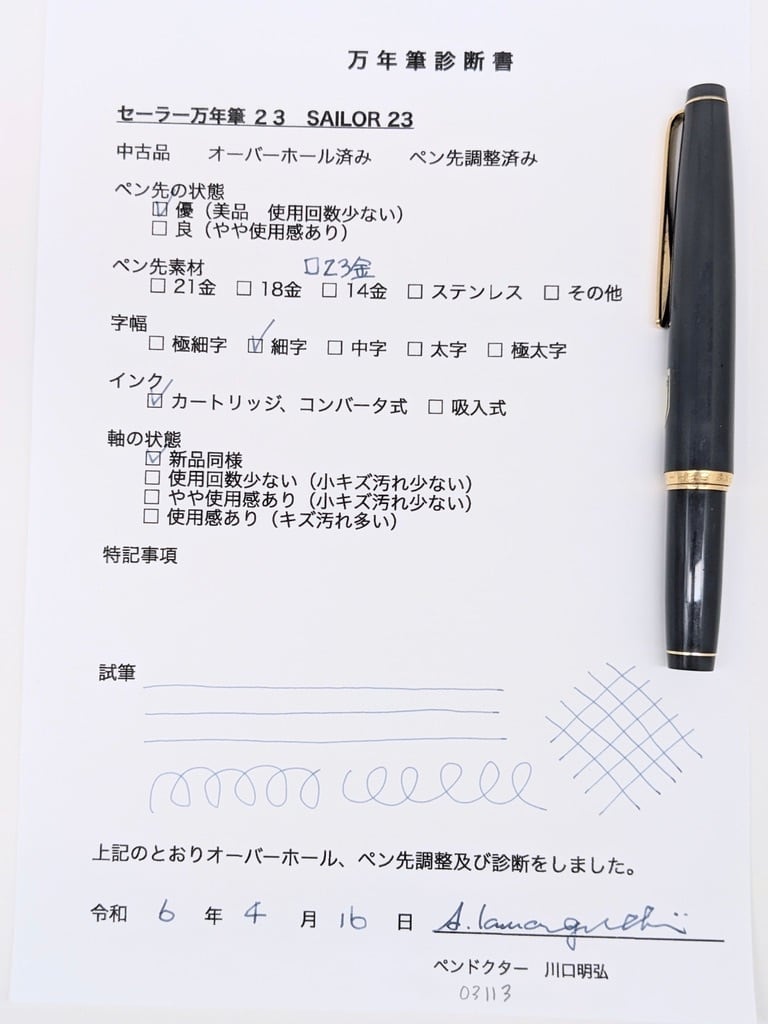 万年筆診断書
セーラー万年筆 23 SAILOR 23
中古品 オーバーホール済み ペン先調整済み
ペン先の状態
☑ 優（美品 使用回数少ない）
□ 良（やや使用感あり）
ペン先素材 □23金
□ 21金 □ 18金 □ 14金 □ ステンレス □ その他
字幅
□ 極細字 ☑ 細字 □ 中字 □ 太字 □ 極太字
インク
☑ カートリッジ、コンバータ式 □ 吸入式
軸の状態
☑ 新品同様
□ 使用回数少ない（小キズ汚れ少ない）
□ やや使用感あり（小キズ汚れ少ない）
□ 使用感あり（キズ汚れ多い）
特記事項
試筆
上記のとおりオーバーホール、ペン先調整及び診断をしました。
令和 6 年 4 月 16 日
ペンドクター 川口明弘
03113